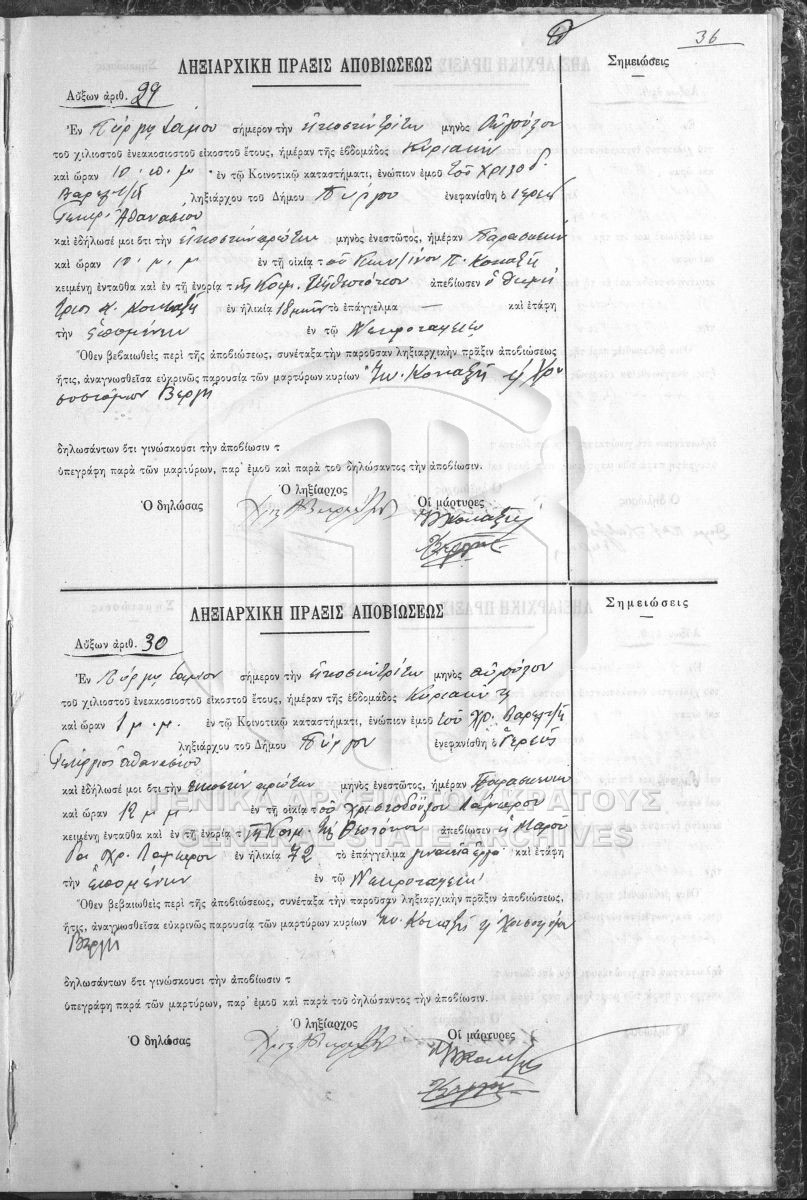 36
ΛΗΞΙΑΡΧΙΚΗ ΠΡΑΞΙΣ ΑΠΟΒΙΩΣΕΩΣ
Σημειώσεις
Αὔξων ἀριθ. 29
Ἐν Πύργῳ Σάμου σήμερον τὴν εἰκοστὴν τρίτην μηνὸς Αὐγούστου
τοῦ χιλιοστοῦ ἐνεακοσιοστοῦ εἰκοστοῦ ἔτους, ἡμέραν τῆς ἑβδομάδος Κυριακὴν
καὶ ὥραν 10 π. μ. ἐν τῷ Κοινοτικῷ καταστήματι, ἐνώπιον ἐμοῦ τοῦ
ληξιάρχου τοῦ Δήμου Πύργου ἐνεφανίσθη ὁ ἱερεὺς
Γεώργ. Ἀθανασίου
καὶ ἐδήλωσέ μοι ὅτι τὴν εἰκοστὴν πρώτην μηνὸς ἐνεστῶτος, ἡμέραν Παρασκευὴν
καὶ ὥραν 10 μ. μ. ἐν τῇ οἰκίᾳ τοῦ Κωνσ/ίνου Π. Κοναξῆ
κειμένῃ ἐνταῦθα καὶ ἐν τῇ ἐνορίᾳ τῆς Κοιμ. τῆς Θεοτόκου ἀπεβίωσεν ὁ
Κ. Κοναξῆ ἐν ἡλικίᾳ 18 μηνῶν τὸ ἐπάγγελμα — καὶ ἐτάφη
τὴν ἑπομένην ἐν τῷ Νεκροταφείῳ
Ὅθεν βεβαιωθεὶς περὶ τῆς ἀποβιώσεως, συνέταξα τὴν παροῦσαν ληξιαρχικὴν πρᾶξιν ἀποβιώσεως
ἥτις, ἀναγνωσθεῖσα εὐκρινῶς παρουσίᾳ τῶν μαρτύρων κυρίων Ἰω. Κοναξῆ ἢ Χρυ
σοστόμου Βεργῆ
δηλωσάντων ὅτι γινώσκουσι τὴν ἀποβίωσιν τ
ὑπεγράφη παρὰ τῶν μαρτύρων, παρ' ἐμοῦ καὶ παρὰ τοῦ δηλώσαντος τὴν ἀποβίωσιν.
Ὁ δηλώσας Ὁ ληξίαρχος Οἱ μάρτυρες
ΛΗΞΙΑΡΧΙΚΗ ΠΡΑΞΙΣ ΑΠΟΒΙΩΣΕΩΣ
Σημειώσεις
Αὔξων ἀριθ. 30
Ἐν Πύργῳ Σάμου σήμερον τὴν εἰκοστὴν τρίτην μηνὸς Αὐγούστου
τοῦ χιλιοστοῦ ἐνεακοσιοστοῦ εἰκοστοῦ ἔτους, ἡμέραν τῆς ἑβδομάδος Κυριακὴν
καὶ ὥραν 1 μ. μ. ἐν τῷ Κοινοτικῷ καταστήματι, ἐνώπιον ἐμοῦ τοῦ Χρ.
ληξιάρχου τοῦ Δήμου Πύργου ἐνεφανίσθη ὁ ἱερεὺς
Γεώργιος Ἀθανασίου
καὶ ἐδήλωσέ μοι ὅτι τὴν εἰκοστὴν πρώτην μηνὸς ἐνεστῶτος, ἡμέραν Παρασκευὴν
καὶ ὥραν 12 μ μ ἐν τῇ οἰκίᾳ τοῦ Χριστοδούλου
κειμένῃ ἐνταῦθα καὶ ἐν τῇ ἐνορίᾳ τῆς Κοιμ. τῆς Θεοτόκου ἀπεβίωσεν ἡ
Χρ. ἐν ἡλικίᾳ 72 τὸ ἐπάγγελμα καὶ ἐτάφη
τὴν ἑπομένην ἐν τῷ Νεκροταφείῳ
Ὅθεν βεβαιωθεὶς περὶ τῆς ἀποβιώσεως, συνέταξα τὴν παροῦσαν ληξιαρχικὴν πρᾶξιν ἀποβιώσεως,
ἥτις, ἀναγνωσθεῖσα εὐκρινῶς παρουσίᾳ τῶν μαρτύρων κυρίων Ἰω. Κοναξῆ ἢ Χρυσοστόμου
Βεργῆ
δηλωσάντων ὅτι γινώσκουσι τὴν ἀποβίωσιν τ
ὑπεγράφη παρὰ τῶν μαρτύρων, παρ' ἐμοῦ καὶ παρὰ τοῦ δηλώσαντος τὴν ἀποβίωσιν.
Ὁ δηλώσας Ὁ ληξίαρχος Οἱ μάρτυρες
ΓΕΝΙΚΑ ΑΡΧΕΙΑ ΤΟΥ ΚΡΑΤΟΥΣ
GENERAL STATE ARCHIVES